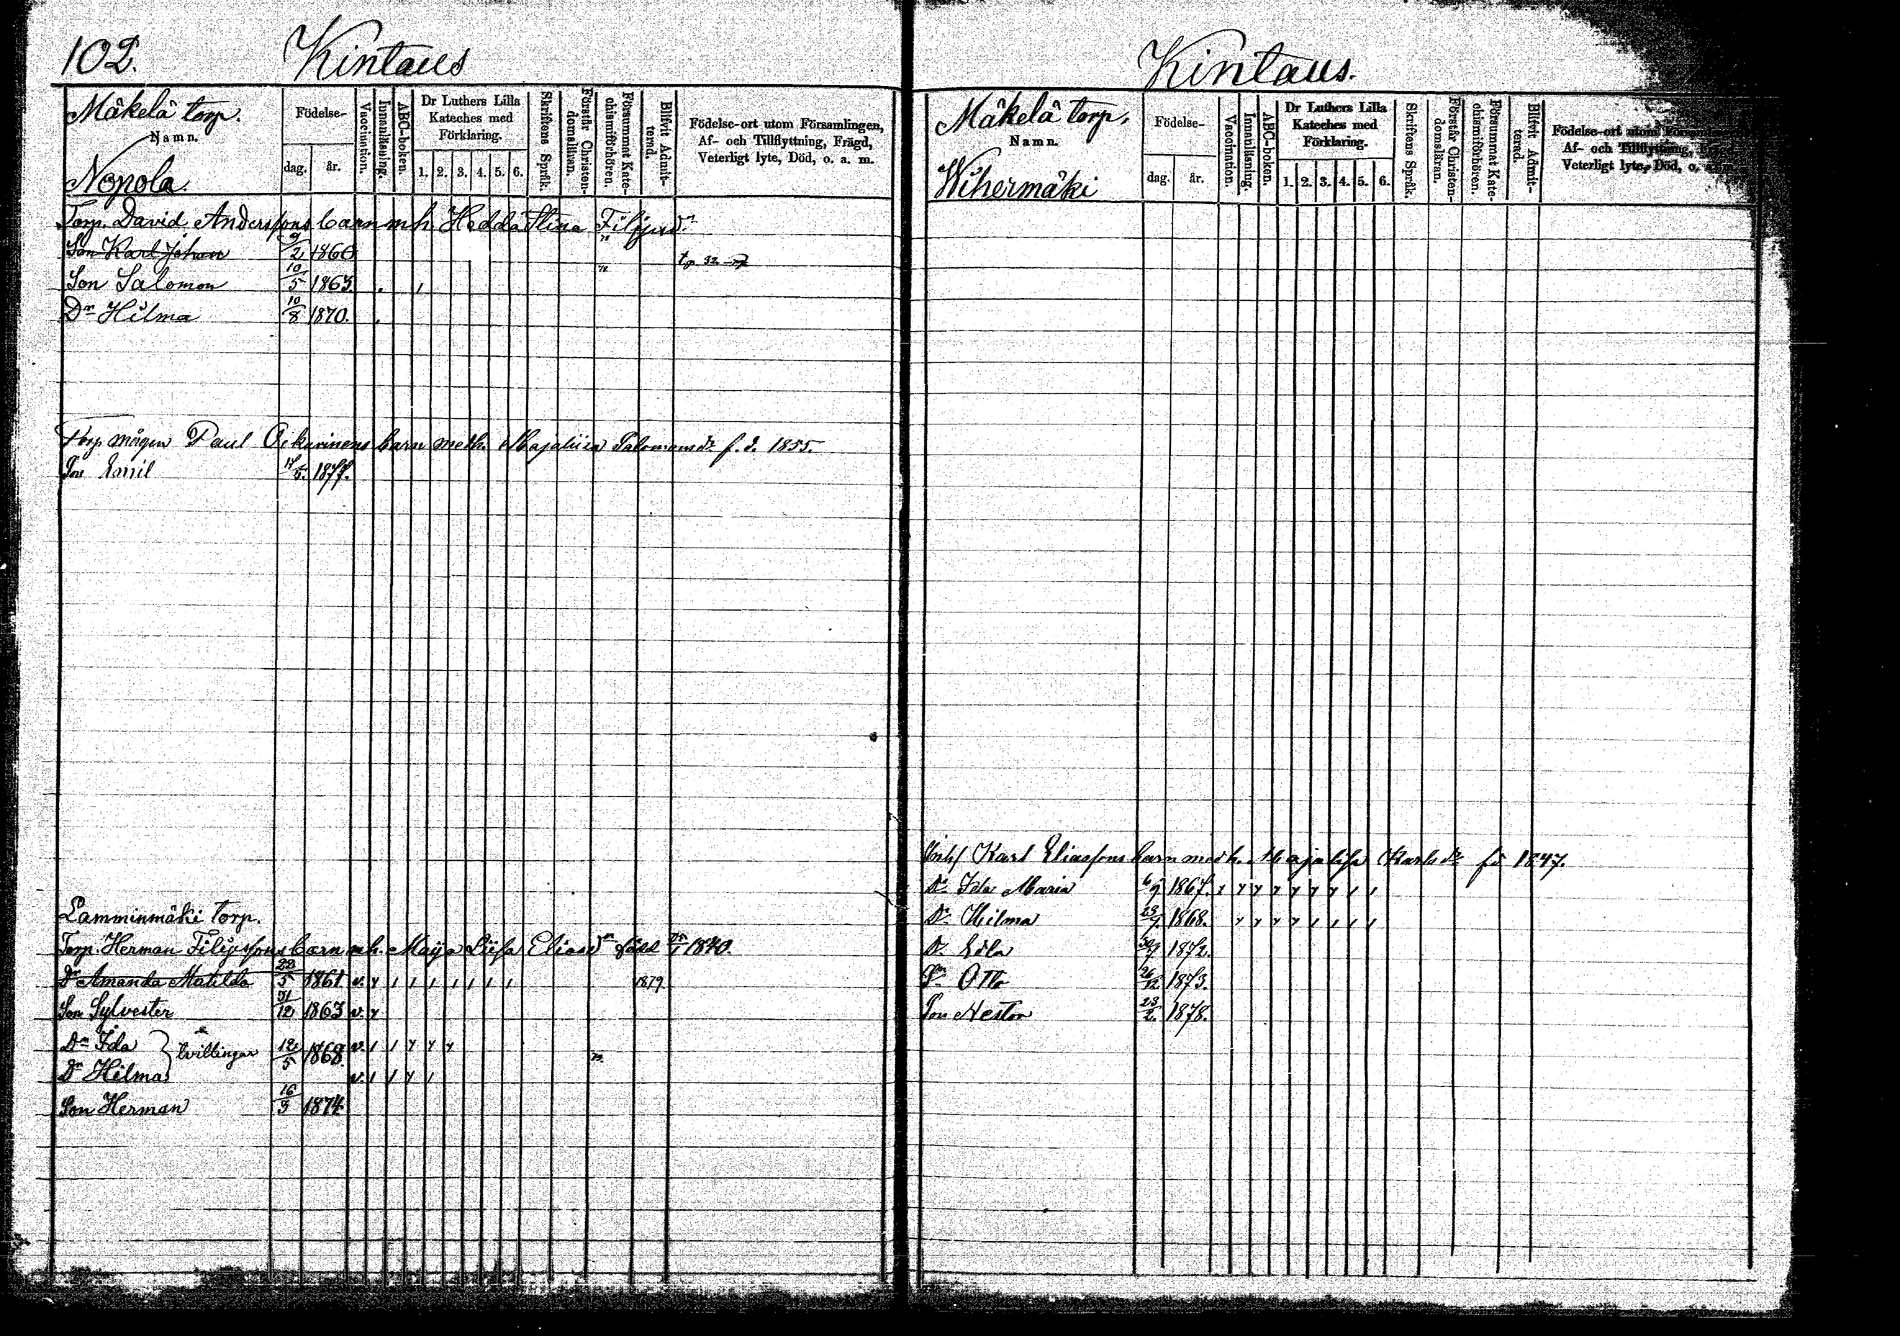 102. Kintaus
Mäkelä torp.
Namn.
Nopola.
Födelse-
dag. år.
Vaccination.
Innanläsning.
ABC-boken.
Dr Luthers Lilla
Kateches med
Förklaring.
1. 2. 3. 4. 5. 6.
Skriftens Språk.
Förstår Christen-
domsläran.
Försummat Kate-
chismiförhören.
Blifvit Admit-
terad.
Födelse-ort utom Församlingen,
Af- och Tillflyttning, Frägd,
Veterligt lyte, Död, o. a. m.
Torp. David Anderssons barn m h. Hedda Stina Filipsdr
Son Karl Johan 9/2 1860
Son Salomon 10/5 1863.
Dr Hilma 10/8 1870.
Torp mågen Paul barn med h. Majaliisa Salomonsdr f. d. 1855.
Son Emil 1877.
Lamminmäki torp.
Torp. Herman Filipssons barn m h. Maija Liisa Eliasdr född 1840.
Dr Amanda Matilda 22/5 1861 v. 1879
Son Sylvester 31/12 1863 v.
Dr Ida } tvillingar 12/5 1868. v.
Dr Hilma v.
Son Herman 16/3 1874
Kintaus.
Mäkelä torp.
Namn.
Wihermäki
Födelse-
dag. år.
Vaccination.
Innanläsning.
ABC-boken.
Dr Luthers Lilla
Kateches med
Förklaring.
1. 2. 3. 4. 5. 6.
Skriftens Språk.
Förstår Christen-
domsläran.
Försummat Kate-
chismiförhören.
Blifvit Admit-
terad.
Födelse-ort utom
Af- och Tillflyttning,
Veterligt lyte, Död, o.
Karl Eliassons barn med h. Majalisa Karlsdr fö 1847.
Dr Ida Maria 6/9 1867.
Dr Hilma 1868.
Dr Edla 1872.
Son Otto 26/12 1873.
Son Nestor 23/2 1878.